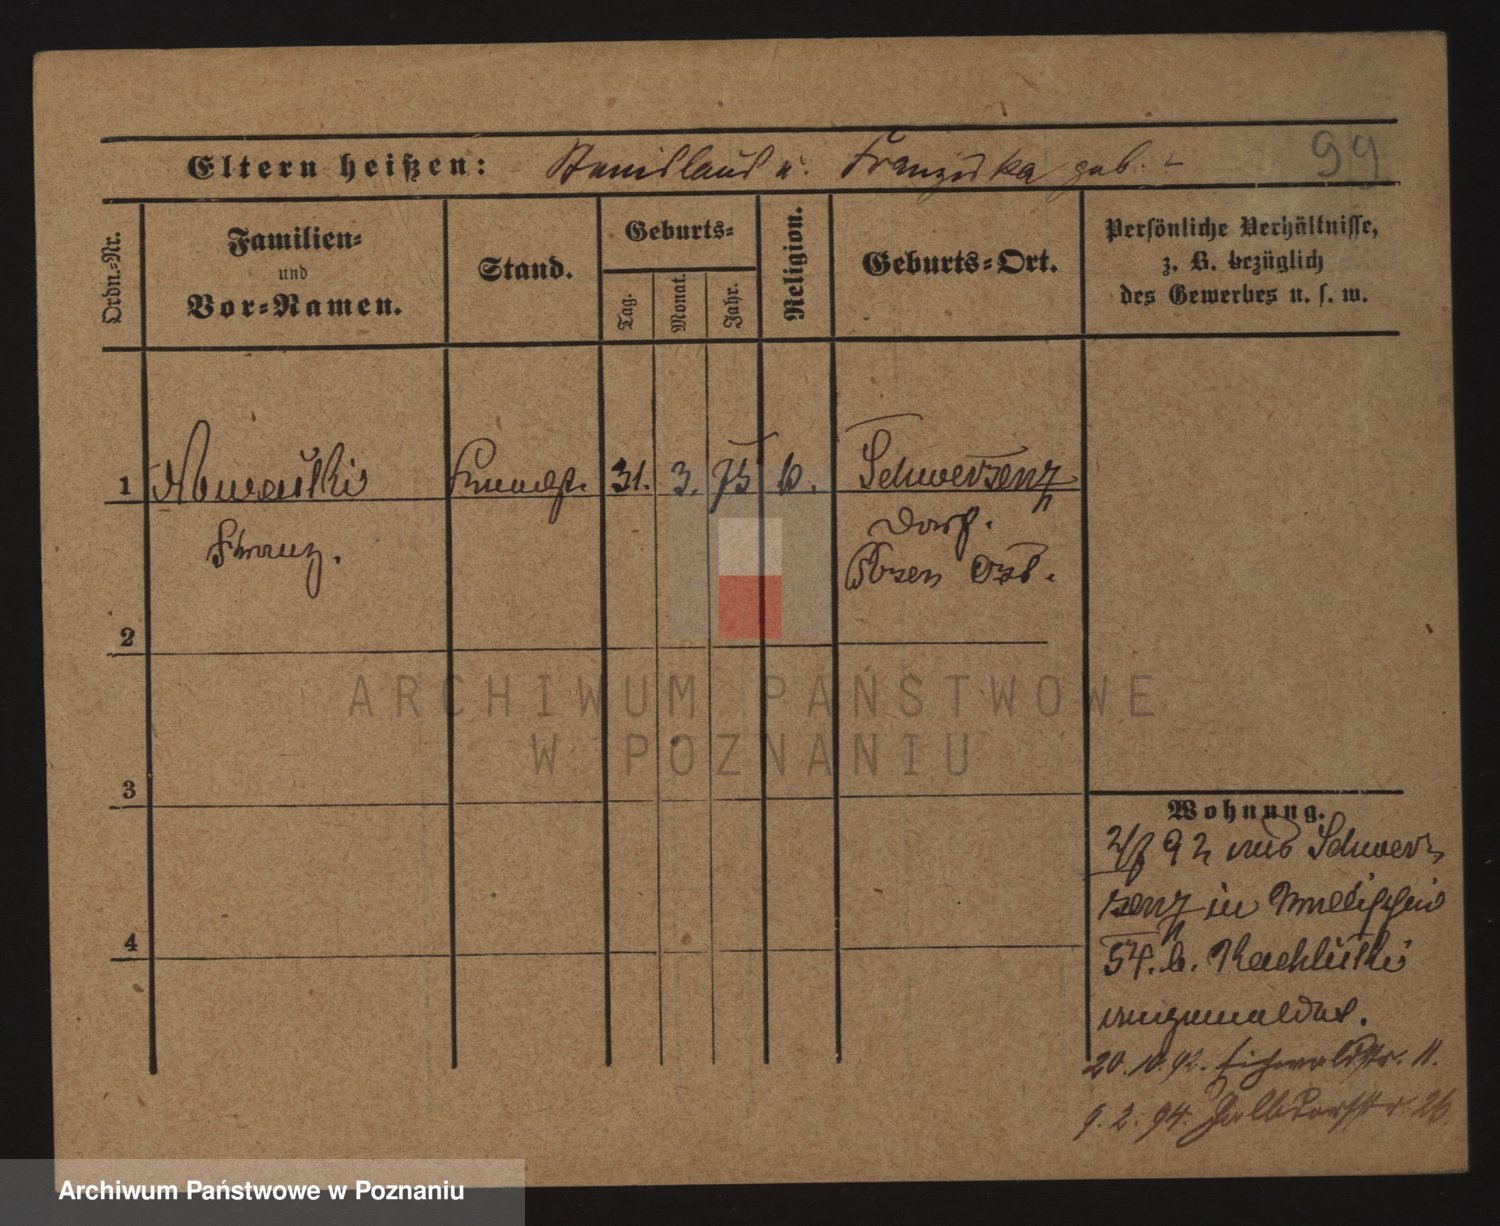 Eltern heißen: Stanislaus u. Franziska geb. -
99
Ordn.-Nr.
Familien-
und
Vor-Namen.
Stand.
Geburts-
Tag.
Monat.
Jahr.
Religion.
Geburts-Ort.
Persönliche Verhältnisse,
z. B. bezüglich
des Gewerbes u. s. w.
1 31. 3. 75 k. Schwersenz
Franz.
Dorf.
Posen Ost.
2
3
4
Wohnung.
92 aus Schwer-
senz in
54. b.
angemeldet.
20. 10. 92. Eichwaldstr. 11.
9. 2. 94. Halbdorfstr. 26.
ARCHIWUM PAŃSTWOWE
W POZNANIU
Archiwum Państwowe w Poznaniu